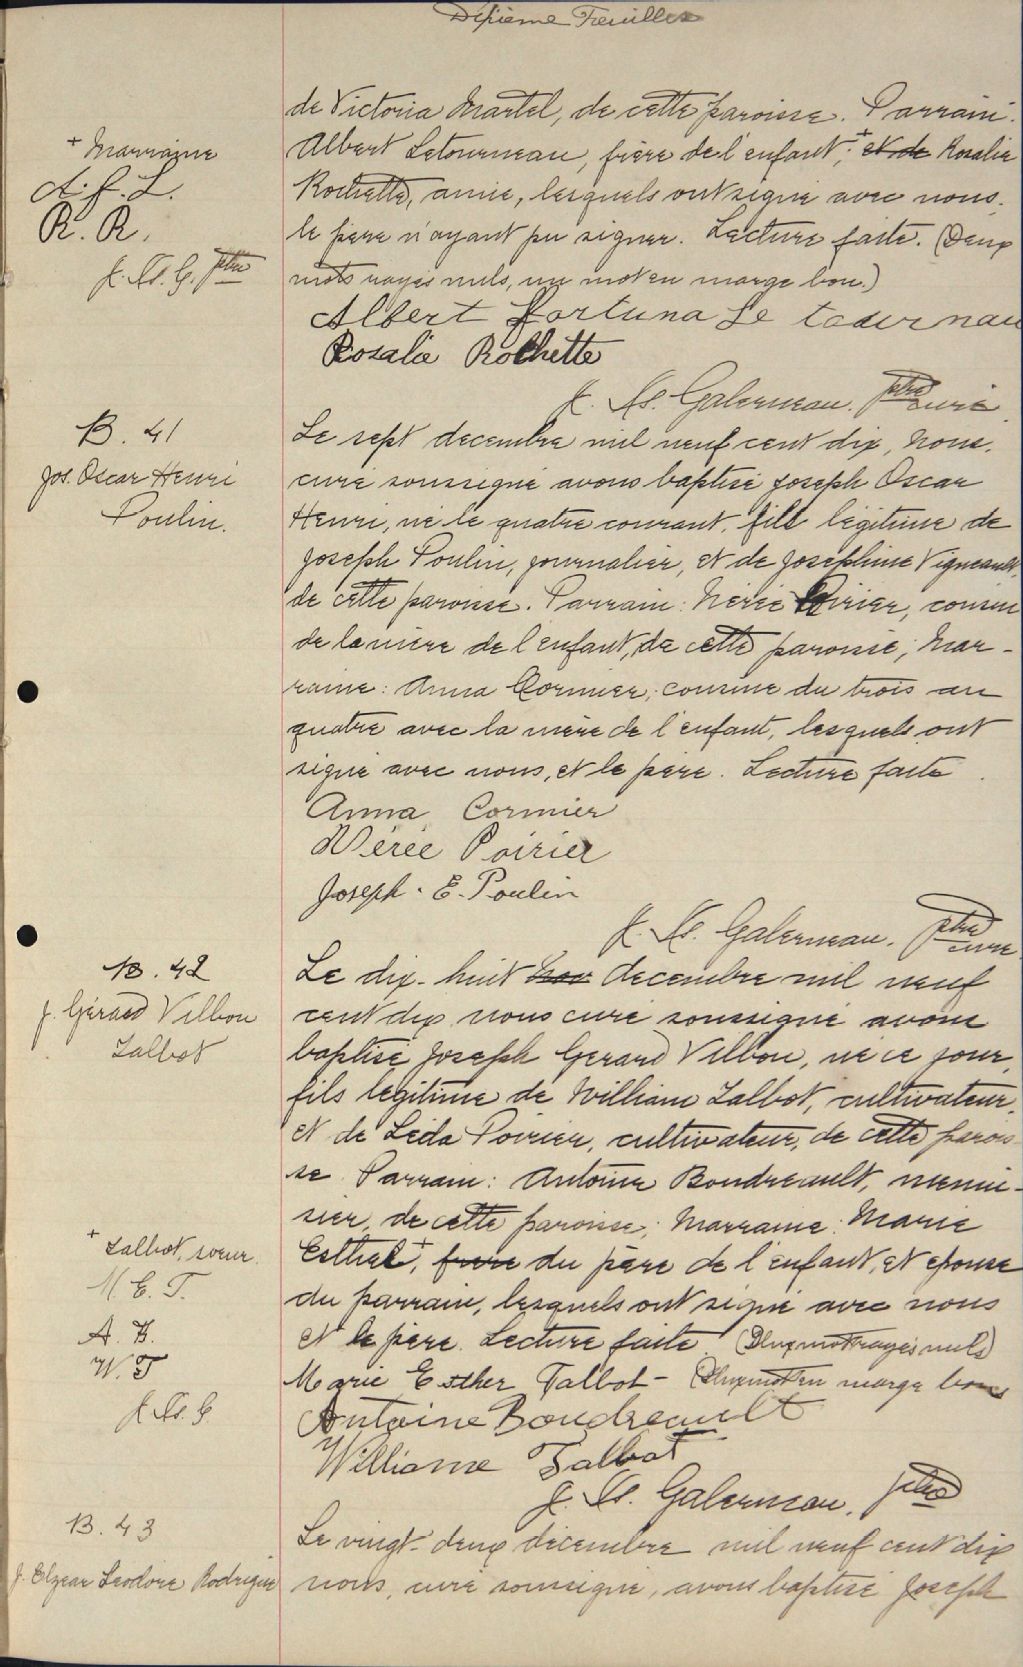 Dixième Feuillet
de Victoria Martel, de cette paroisse. Parrain:
+ Marraine
Albert Letourneau, frère de l'enfant; + et de Rosalie
A. f. L.
Rochette, amie, lesquels ont signé avec nous.
R. R.
le père n'ayant pu signer. Lecture faite. (Deux
J. N. G. ptre
mots rayés nuls, un mot en marge bon.)
Albert Fortuna Le tournau
Rosalie Rochette
J. N. Galerneau. ptre curé
B. 41
Le sept decembre mil neuf cent dix, nous,
Jos. Oscar Henri
curé soussigné avons baptisé Joseph Oscar
Poulin.
Henri, né le quatre courant, fils légitime de
Joseph Poulin, journalier, et de Josephine Vigneault,
de cette paroisse. Parrain: Nérée Poirier, cousin
de la mère de l'enfant, de cette paroisse; Mar-
raine: Anna Cormier, cousine du trois au
quatre avec la mère de l'enfant, lesquels ont
signé avec nous, et le père. Lecture faite.
Anna Cormier
Nérée Poirier
Joseph. E. Poulin
J. N. Galerneau. ptre curé
B. 42
Le dix-huit nov decembre mil neuf
J. Gérard Vilbon
cent dix nous curé soussigné avons
Talbot
baptisé Joseph Gerard Vilbon, né ce jour,
fils légitime de William Talbot, cultivateur,
et de Léda Poirier, cultivateur, de cette parois
se. Parrain: Antoine Boudreault, menui-
sier, de cette paroisse; Marraine: Marie
+ Talbot, sœur.
Esther +, frère du père de l'enfant, et épouse
M. E. T.
du parrain, lesquels ont signé avec nous
A. B.
et le père. Lecture faite. (Deux mots rayés nuls)
W. T
Marie Esther Talbot - (Deux mots en marge bons
J. N. G
Antoine Boudreault
William Talbot
J. N. Galerneau. ptre
B. 43
Le vingt-deux décembre mil neuf cent dix
J. Elzear Leodore Rodrigue
nous, curé soussigné, avons baptisé Joseph